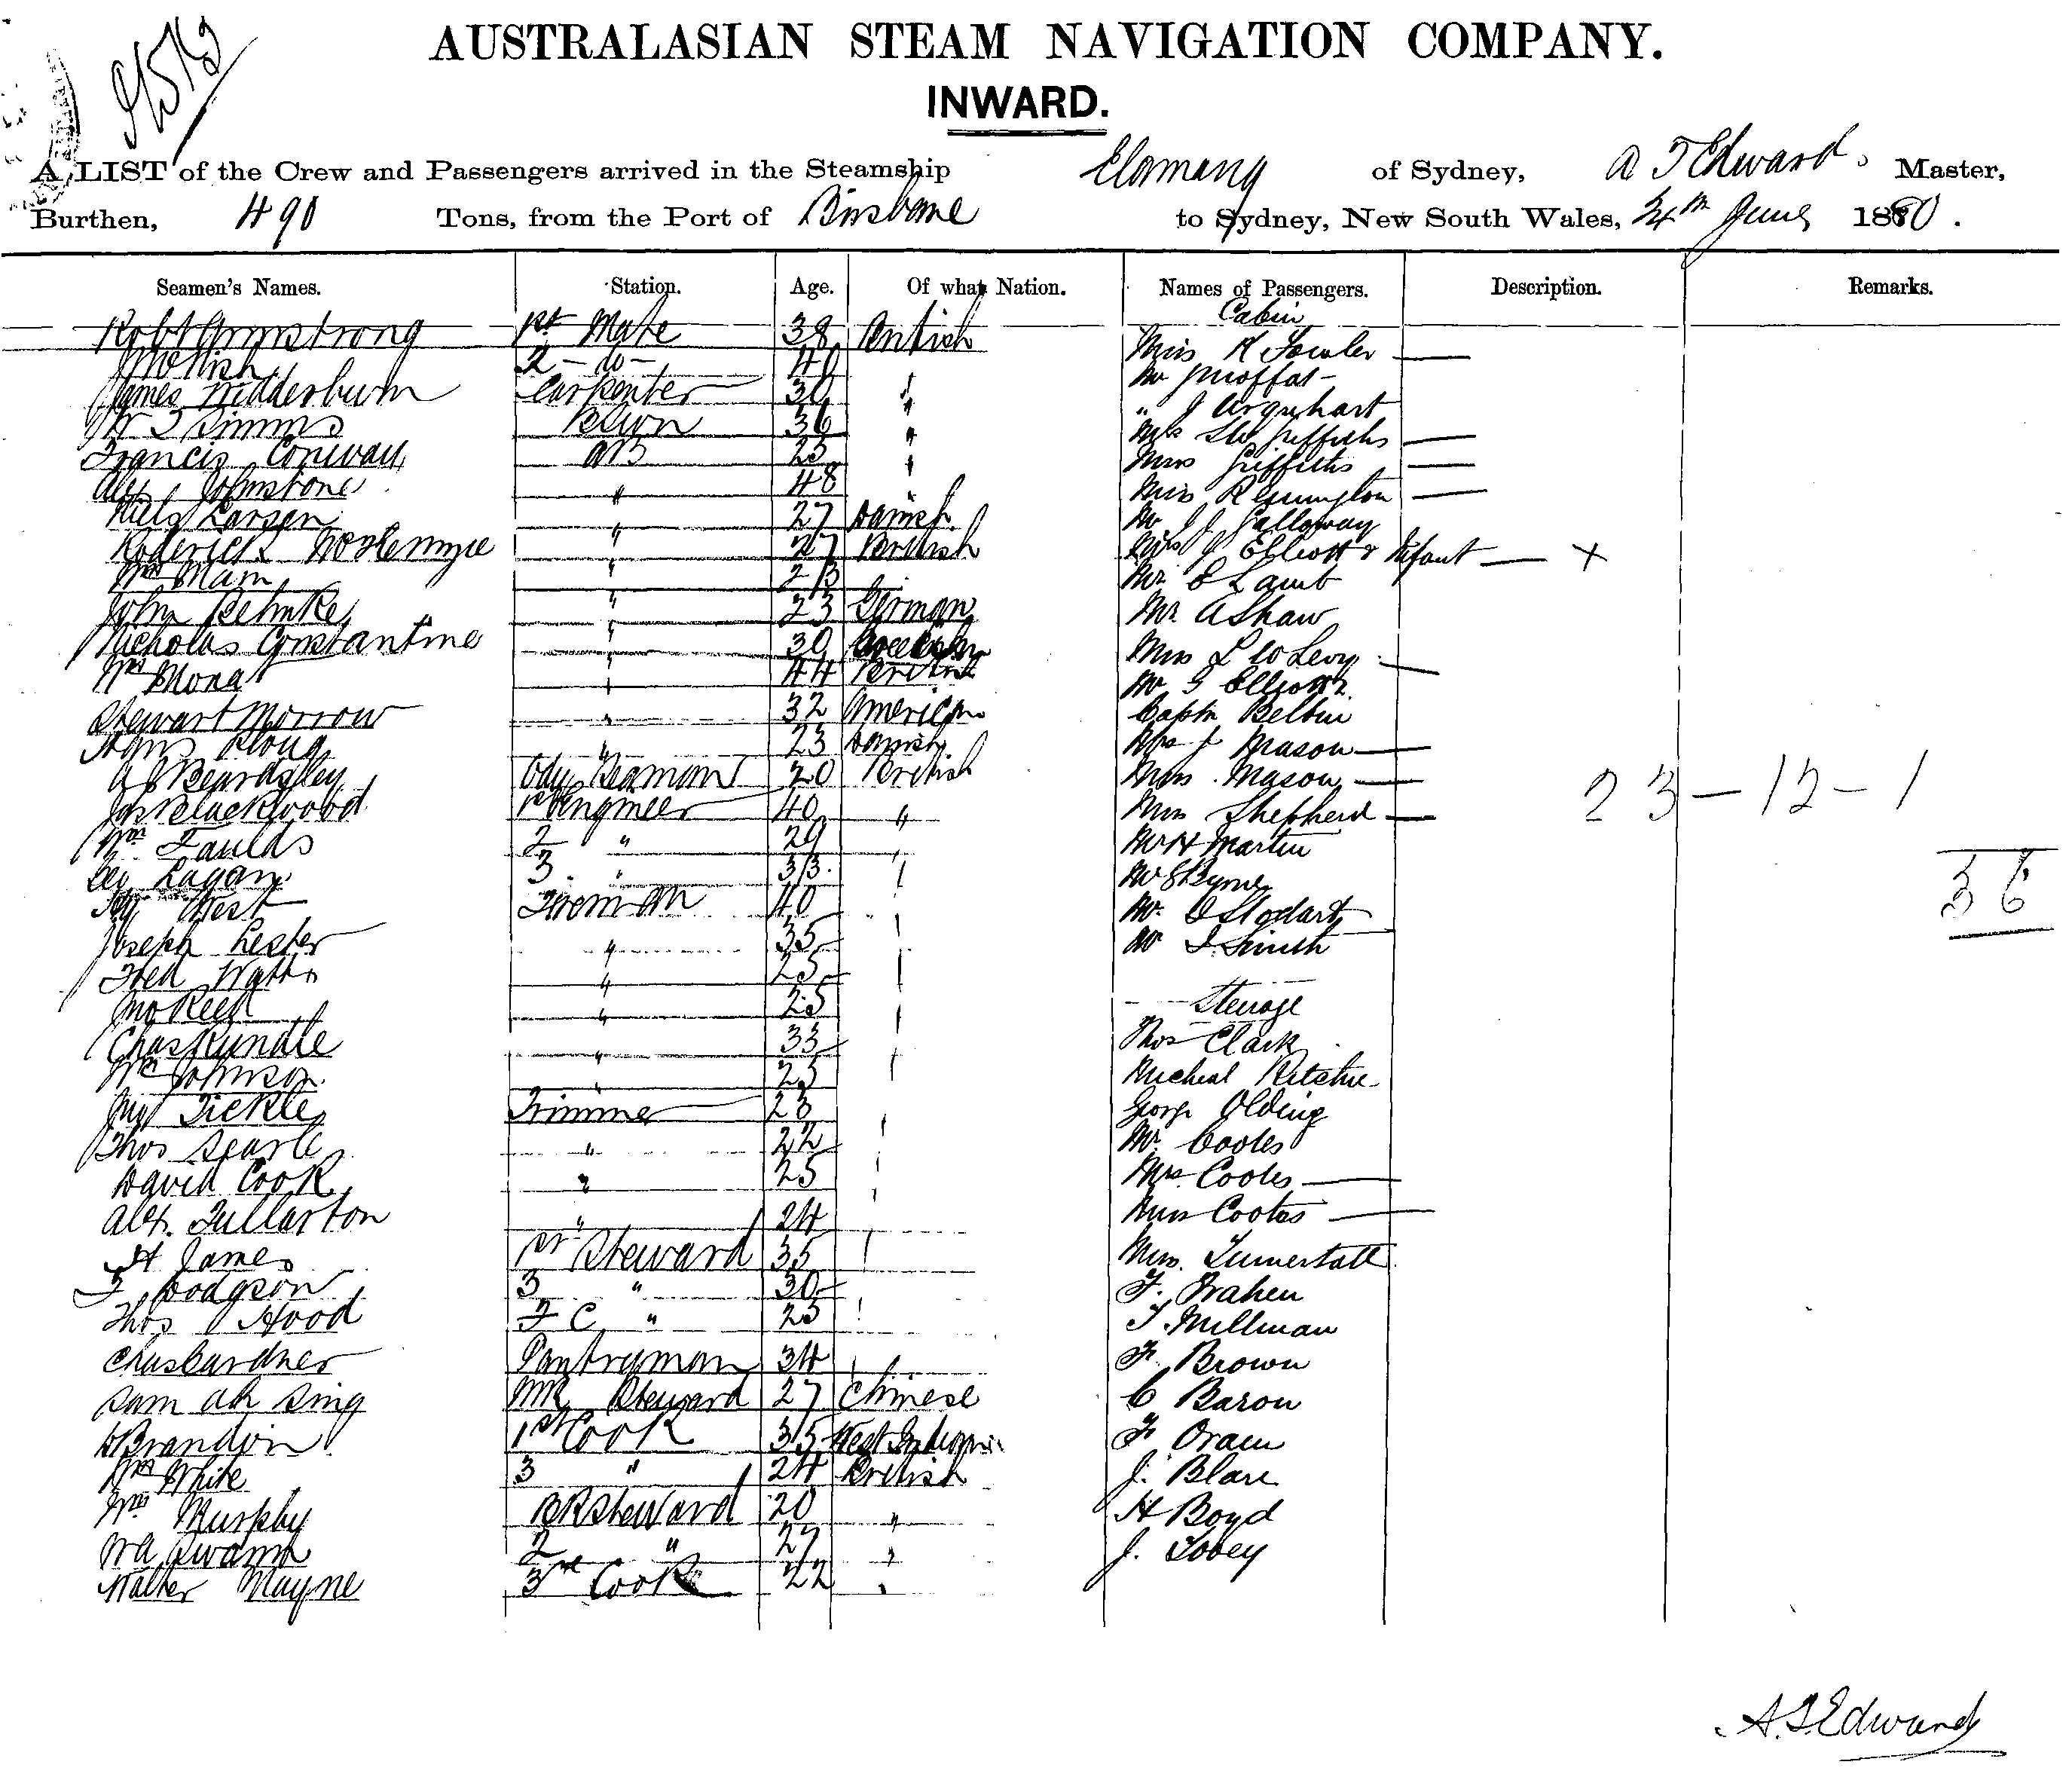 AUSTRALASIAN STEAM NAVIGATION COMPANY.
INWARD.
A LIST of the Crew and Passengers arrived in the Steamship Elamang of Sydney, A T Edward Master,
Burthen, 490 Tons, from the Port of Brisbane to Sydney, New South Wales, 24th June 1880.
Seamen's Names. Station. Age. Of what Nation. Names of Passengers. Description. Remarks.
Cabin
Robt Armstrong 1st Mate 38 British Miss K Fowler
2 - do - 40 Mr J Moffat
James Widderburn Carpenter 30 " J Urquhart
Wm T Simms 36 Mrs Griffiths
Francis Conway AB 23 Miss Griffiths
Alex Johnstone " 48 " Miss Remington
Niels Larsen " 27 Danish Mr J J Galloway
Roderick McKenzie " 27 British Mrs J Elliott & Infant X
Wm Main " 23 Mr E Lamb
John Behnke " 23 German Mr A Shaw
Nicholas Constantine " 30 Grecian Mrs L W Levy
Wm Mona " 44 British Mr G Elliott
Stewart Morrow " 32 American Captn Belbin
Hans Kloug " 23 Danish Mrs J Mason
A J Beardsley Ody Seaman 20 British Miss Mason
Jas Blackwood 1st Engineer 40 " Miss Shepherd 23 - 12 - 1
Wm Faulds 2 " 29 Mr H Martin
Lagan 3 " 33 Mr Byrne 36
Hy West Fireman 40 Mr D Stodart
Joseph Lester " 35 Mr J Smith
Fred Watts " 25
Jno Reed " 25 Steerage
Chas Rundle " 33 Thos Clark
Wm Johnson " 25 Micheal Ritchie
Tickle Trimmer 23 George Olding
Thos Searle " 22 Mr Cootes
David Cook " 25 Mrs Cootes
Alex. Fullarton " 24 Miss Cootes
H James 1st Steward 35 Mrs. Tunerstall
F Hodgson 3 " 30 F. Brahen
Thos Hood F C " 23 T. Millman
Chas Gardner Pantryman 34 F. Brown
Sam Ah Sing Steward 27 Chinese C Baron
D Brandon 1st Cook 35 West Indian F Oram
Wm White 3 " 24 British J. Blare
Wm Murphy B R Steward 20 " H Boyd
W A Swann 2 " 27 " J. Tobey
Walter Mayne 3rd Cook 22 "
A. T. Edward